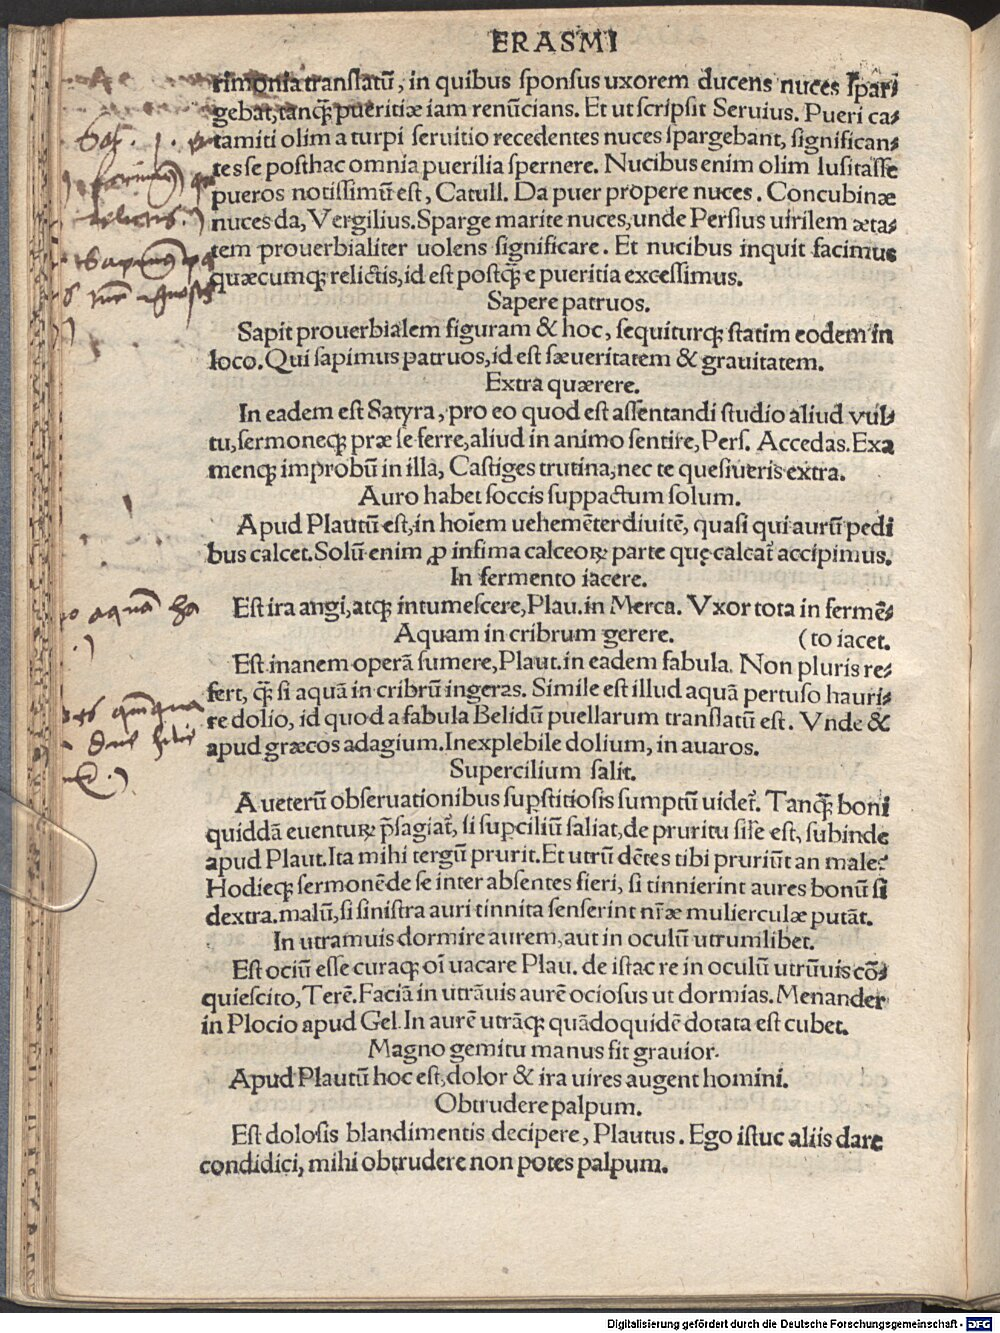 ERASMI
rimonia translatū, in quibus sponsus uxorem ducens nuces spar⸗
gebat, tanq̃ pueritiæ iam renūcians. Et ut scripsit Seruius. Pueri ca⸗
tamiti olim a turpi seruitio recedentes nuces spargebant, significan⸗
tes se posthac omnia puerilia spernere. Nucibus enim olim lusitasse
pueros notissimū est, Catull. Da puer propere nuces. Concubinæ
nuces da, Vergilius. Sparge marite nuces, unde Persius uirilem æta⸗
tem prouerbialiter uolens significare. Et nucibus inquit facimus
quæcumqꝫ relictis, id est postq̃ e pueritia excessimus.
Sapere patruos.
Sapit prouerbialem figuram & hoc, sequiturqꝫ statim eodem in
loco. Qui sapimus patruos, id est sæueritatem & grauitatem.
Extra quærere.
In eadem est Satyra, pro eo quod est assentandi studio aliud vul⸗
tu, sermoneqꝫ præ se ferre, aliud in animo sentire, Pers. Accedas. Exa
menqꝫ improbū in illa, Castiges trutina, nec te quesiueris extra.
Auro habet soccis suppactum solum.
Apud Plautū est, in hoīem uehemēter diuitē, quasi qui aurū pedi
bus calcet. Solū enim ꝓ infima calceoꝝ parte quę calcat̃ accipimus.
In fermento iacere.
Est ira angi, atqꝫ intumescere, Plau. in Merca. Vxor tota in fermē⸗
Aquam in cribrum gerere. (to iacet.
Est inanem operā sumere, Plaut. in eadem fabula. Non pluris re⸗
fert, q̃ si aquā in cribrū ingeras. Simile est illud aquā pertuso hauri⸗
re dolio, id quod a fabula Belidū puellarum translatū est. Vnde &
apud græcos adagium. Inexplebile dolium, in auaros.
Supercilium salit.
A ueterū obseruationibus suꝑstitiosis sumptū uidet̃. Tanq̃ boni
quiddā euentuꝝ p̃sagiat̃, si suꝑciliū saliat, de pruritu sil̃e est, subinde
apud Plaut. Ita mihi tergū prurit. Et utrū dētes tibi pruriūt an male?
Hodieqꝫ sermonē de se inter absentes fieri, si tinnierint aures bonū si
dextra. malū, si sinistra auri tinnita senserint nr̃æ mulierculæ putāt.
In utramuis dormire aurem, aut in oculū utrumlibet.
Est ociū esse curaqꝫ oī uacare Plau. de istac re in oculū utrūuis cō⸗
quiescito, Terē. Faciā in utrāuis aurē ociosus ut dormias. Menander
in Plocio apud Gel. In aurē utrāqꝫ quādoquidē dotata est cubet.
Magno gemitu manus fit grauior.
Apud Plautū hoc est, dolor & ira uires augent homini.
Obtrudere palpum.
Est dolosis blandimentis decipere, Plautus. Ego istuc aliis dare
condidici, mihi obtrudere non potes palpum.
aquā
Digitalisierung gefördert durch die Deutsche Forschungsgemeinschaft - DFG